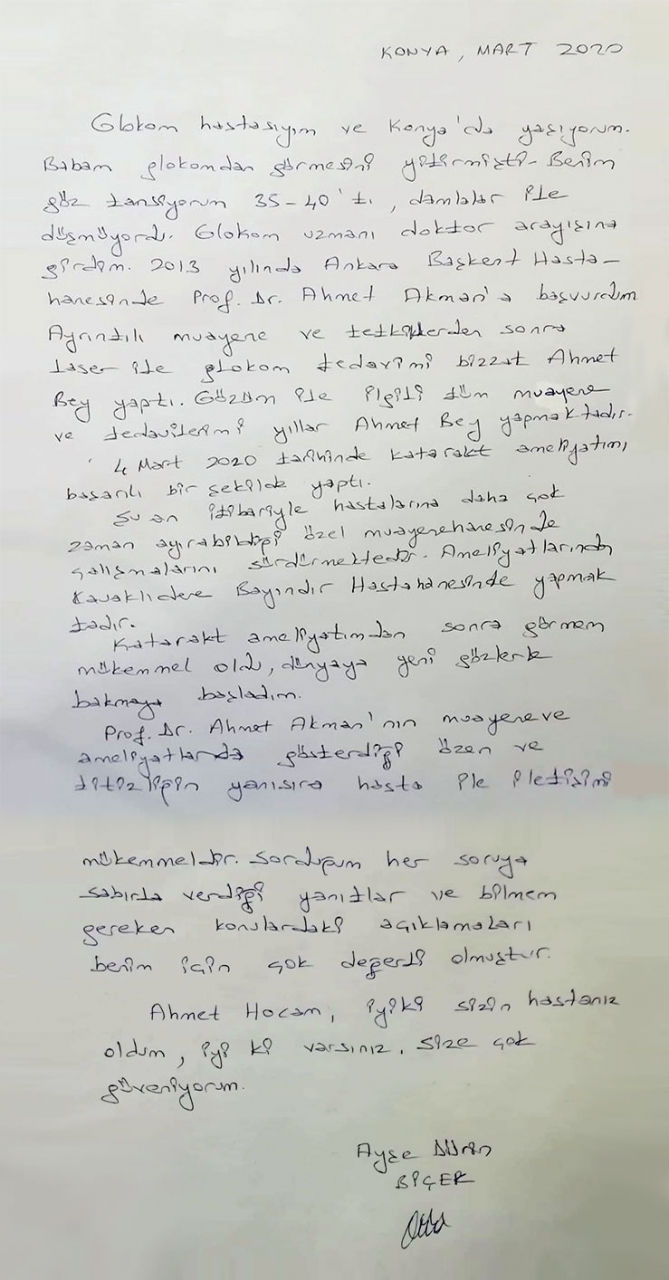 KONYA, MART 2020
Glokom hastasıyım ve Konya'da yaşıyorum.
Babam glokomdan görmesini yitirmişti. Benim
göz tansiyonum 35-40'tı, damlalar ile
düşmüyordu. Glokom uzmanı doktor arayışına
girdim. 2013 yılında Ankara Başkent Hasta-
hanesinde Prof. Dr. Ahmet Akman'a başvurdum
Ayrıntılı muayene ve tetkiklerden sonra
laser ile glokom tedavimi bizzat Ahmet
Bey yaptı. Gözüm ile ilgili tüm muayene
ve tedavilerimi yıllar Ahmet Bey yapmaktadır.
4 Mart 2020 tarihinde katarakt ameliyatımı
başarılı bir şekilde yaptı.
Şu an itibariyle hastalarına daha çok
zaman ayırabildiği özel muayenehanesinde
çalışmalarını sürdürmektedir. Ameliyatlarınıda
Kavaklıdere Bayındır Hastahanesinde yapmak
tadır.
Katarakt ameliyatımdan sonra görmem
mükemmel oldu, dünyaya yeni gözlerle
bakmaya başladım.
Prof. Dr. Ahmet Akman'nın muayene ve
ameliyatlarda gösterdiği özen ve
titizliğin yanısıra hasta ile iletişimi
mükemmeldir. Sorduğum her soruya
sabırla verdiği yanıtlar ve bilmem
gereken konulardaki açıklamaları
benim için çok değerli olmuştur.
Ahmet Hocam, iyiki sizin hastanız
oldum, iyi ki varsınız. Size çok
güveniyorum.
Ayşe
BİÇER